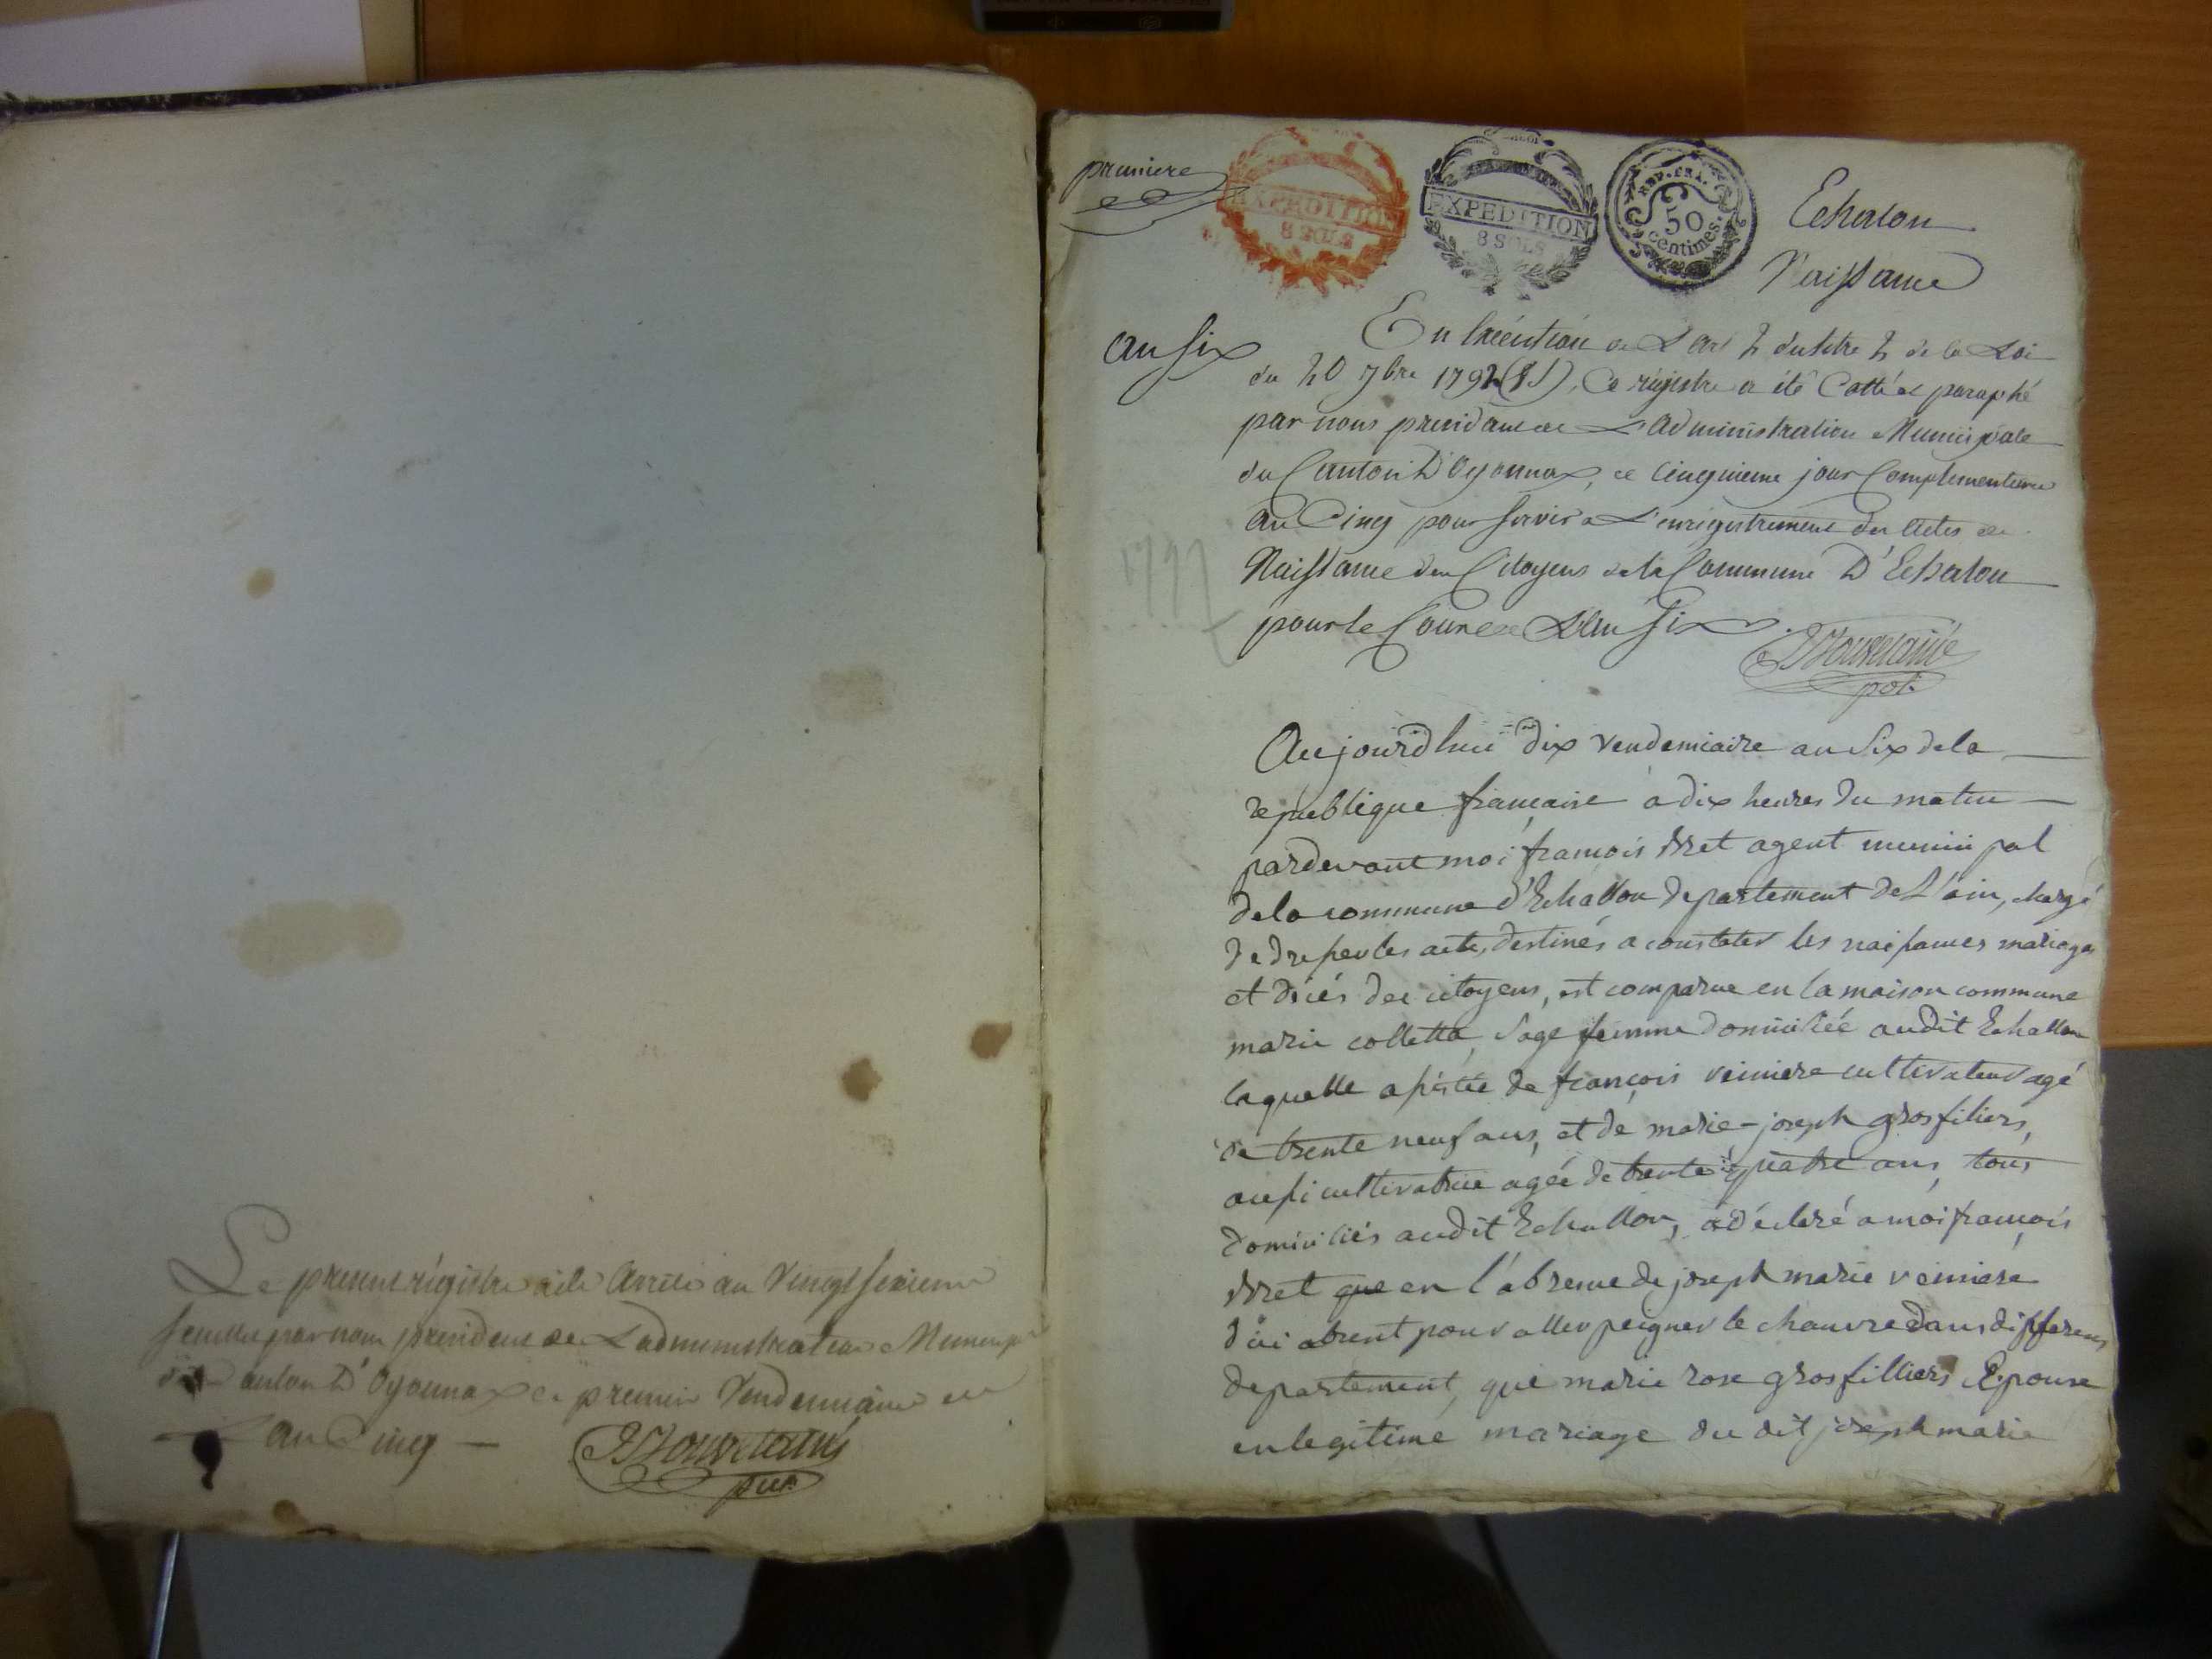 Le present régistre a été Arrêté au Vingt sixieme
feuillet par nous president de L'administration Municip
du Canton D'Oyonnax ce premier Vendemiaire
L'an Cinq
premiere
EXPEDITION
8 SOLS
EXPEDITION
8 SOLS
REP. FRA.
50
centimes.
Echalon
Naissance
an six
En Exécution de L'art 2 du titre 2 de la Loi
du 20 7bre 1792 Ce régistre a été Cotté et paraphé
par nous president de L'administration Municipale
du Canton D'Oyonnax, ce Cinquieme jour Complementaire
an Cinq pour servir a L'enrégistrement des Actes de
Naissance des Citoyens de la Commune D'Echalon
pour le Cours de L'an Six
1797
Aujourd'hui dix vendemiaire an Six de la
republique française a dix heures du matin
pardevant moi françois dret agent municipal
de la commune d'Echallon departement de L'ain, chargé
de dresser les actes destinés a constater les naissances mariages
et décés des citoyens, est comparue en la maison commune
marie colletta, sage femme domiciliée audit Echallon
laquelle assistée de françois veiniere cultivateur agé
de trente neuf ans, et de marie-joseph grosfiliers,
aussi cultivatrice agée de trente quatre ans, tous
domiciliés audit Echallon, a déclaré a moi françois
dret que en l'absence de joseph marie veiniere
d'ici absent pour aller peigner le chanvre dans differens
departement, que marie rose grosfilliers Epouse
en legitime mariage du dit joseph marie